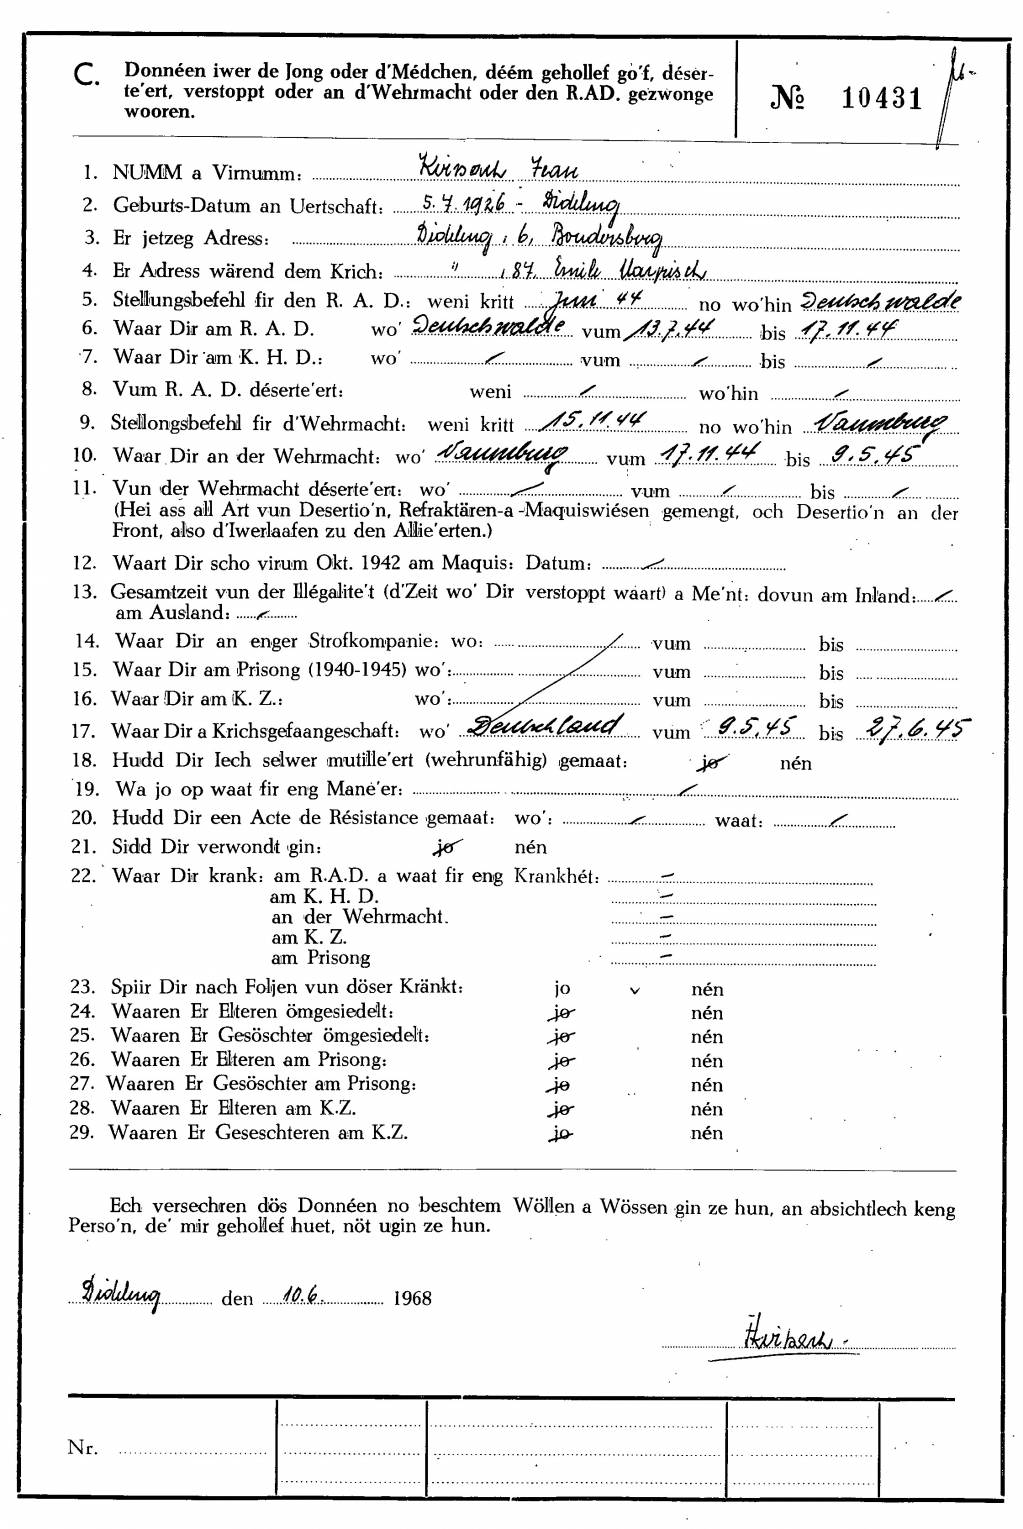 C. Donnéen iwer de Jong oder d'Médchen, déém gehollef go'f, déser-
te'ert, verstoppt oder an d'Wehrmacht oder den R.AD. gezwonge
wooren.
№ 10431
1. NUMM a Virnumm: Jean
2. Geburts-Datum an Uertschaft: 5.7.1926 - Dideling
3. Er jetzeg Adress: Dideling, 6, Boudersberg
4. Er Adress wärend dem Krich: " , 87, Emile
5. Stellungsbefehl fir den R. A. D.: weni kritt Juni 44 no wo'hin Deutschwalde
6. Waar Dir am R. A. D. wo' Deutschwalde vum 13.7.44 bis 17.11.44
7. Waar Dir am K. H. D.: wo' / vum / bis /
8. Vum R. A. D. déserte'ert: weni / wo'hin /
9. Stellongsbefehl fir d'Wehrmacht: weni kritt 15.11.44 no wo'hin Naumburg
10. Waar Dir an der Wehrmacht: wo' Naumburg vum 17.11.44 bis 9.5.45
11. Vun der Wehrmacht déserte'ert: wo' / vum / bis /
(Hei ass all Art vun Desertio'n, Refraktären-a -Maquiswiésen gemengt, och Desertio'n an der
Front, also d'Iwerlaafen zu den Allie'erten.)
12. Waart Dir scho virum Okt. 1942 am Maquis: Datum: /
13. Gesamtzeit vun der Illégalite't (d'Zeit wo' Dir verstoppt waart) a Me'nt: dovun am Inland: /
am Ausland: /
14. Waar Dir an enger Strofkompanie: wo: vum bis
15. Waar Dir am Prisong (1940-1945) wo': vum bis
16. Waar Dir am K. Z.: wo': vum bis
17. Waar Dir a Krichsgefaangeschaft: wo' Deutschland vum 9.5.45 bis 27.6.45
18. Hudd Dir Iech selwer mutille'ert (wehrunfähig) gemaat: jo nén
19. Wa jo op waat fir eng Mane'er: /
20. Hudd Dir een Acte de Résistance gemaat: wo': / waat: /
21. Sidd Dir verwondt gin: jo nén
22. Waar Dir krank: am R.A.D. a waat fir eng Krankhét: –
am K. H. D. –
an der Wehrmacht. –
am K. Z. –
am Prisong –
23. Spiir Dir nach Foljen vun döser Kränkt: jo v nén
24. Waaren Er Elteren ömgesiedelt: jo nén
25. Waaren Er Gesöschter ömgesiedelt: jo nén
26. Waaren Er Elteren am Prisong: jo nén
27. Waaren Er Gesöschter am Prisong: jo nén
28. Waaren Er Elteren am K.Z. jo nén
29. Waaren Er Geseschteren am K.Z. jo nén
Ech versechren dös Donnéen no beschtem Wöllen a Wössen gin ze hun, an absichtlech keng
Perso'n, de' mir gehollef huet, nöt ugin ze hun.
Dideling den 10.6. 1968
Nr.